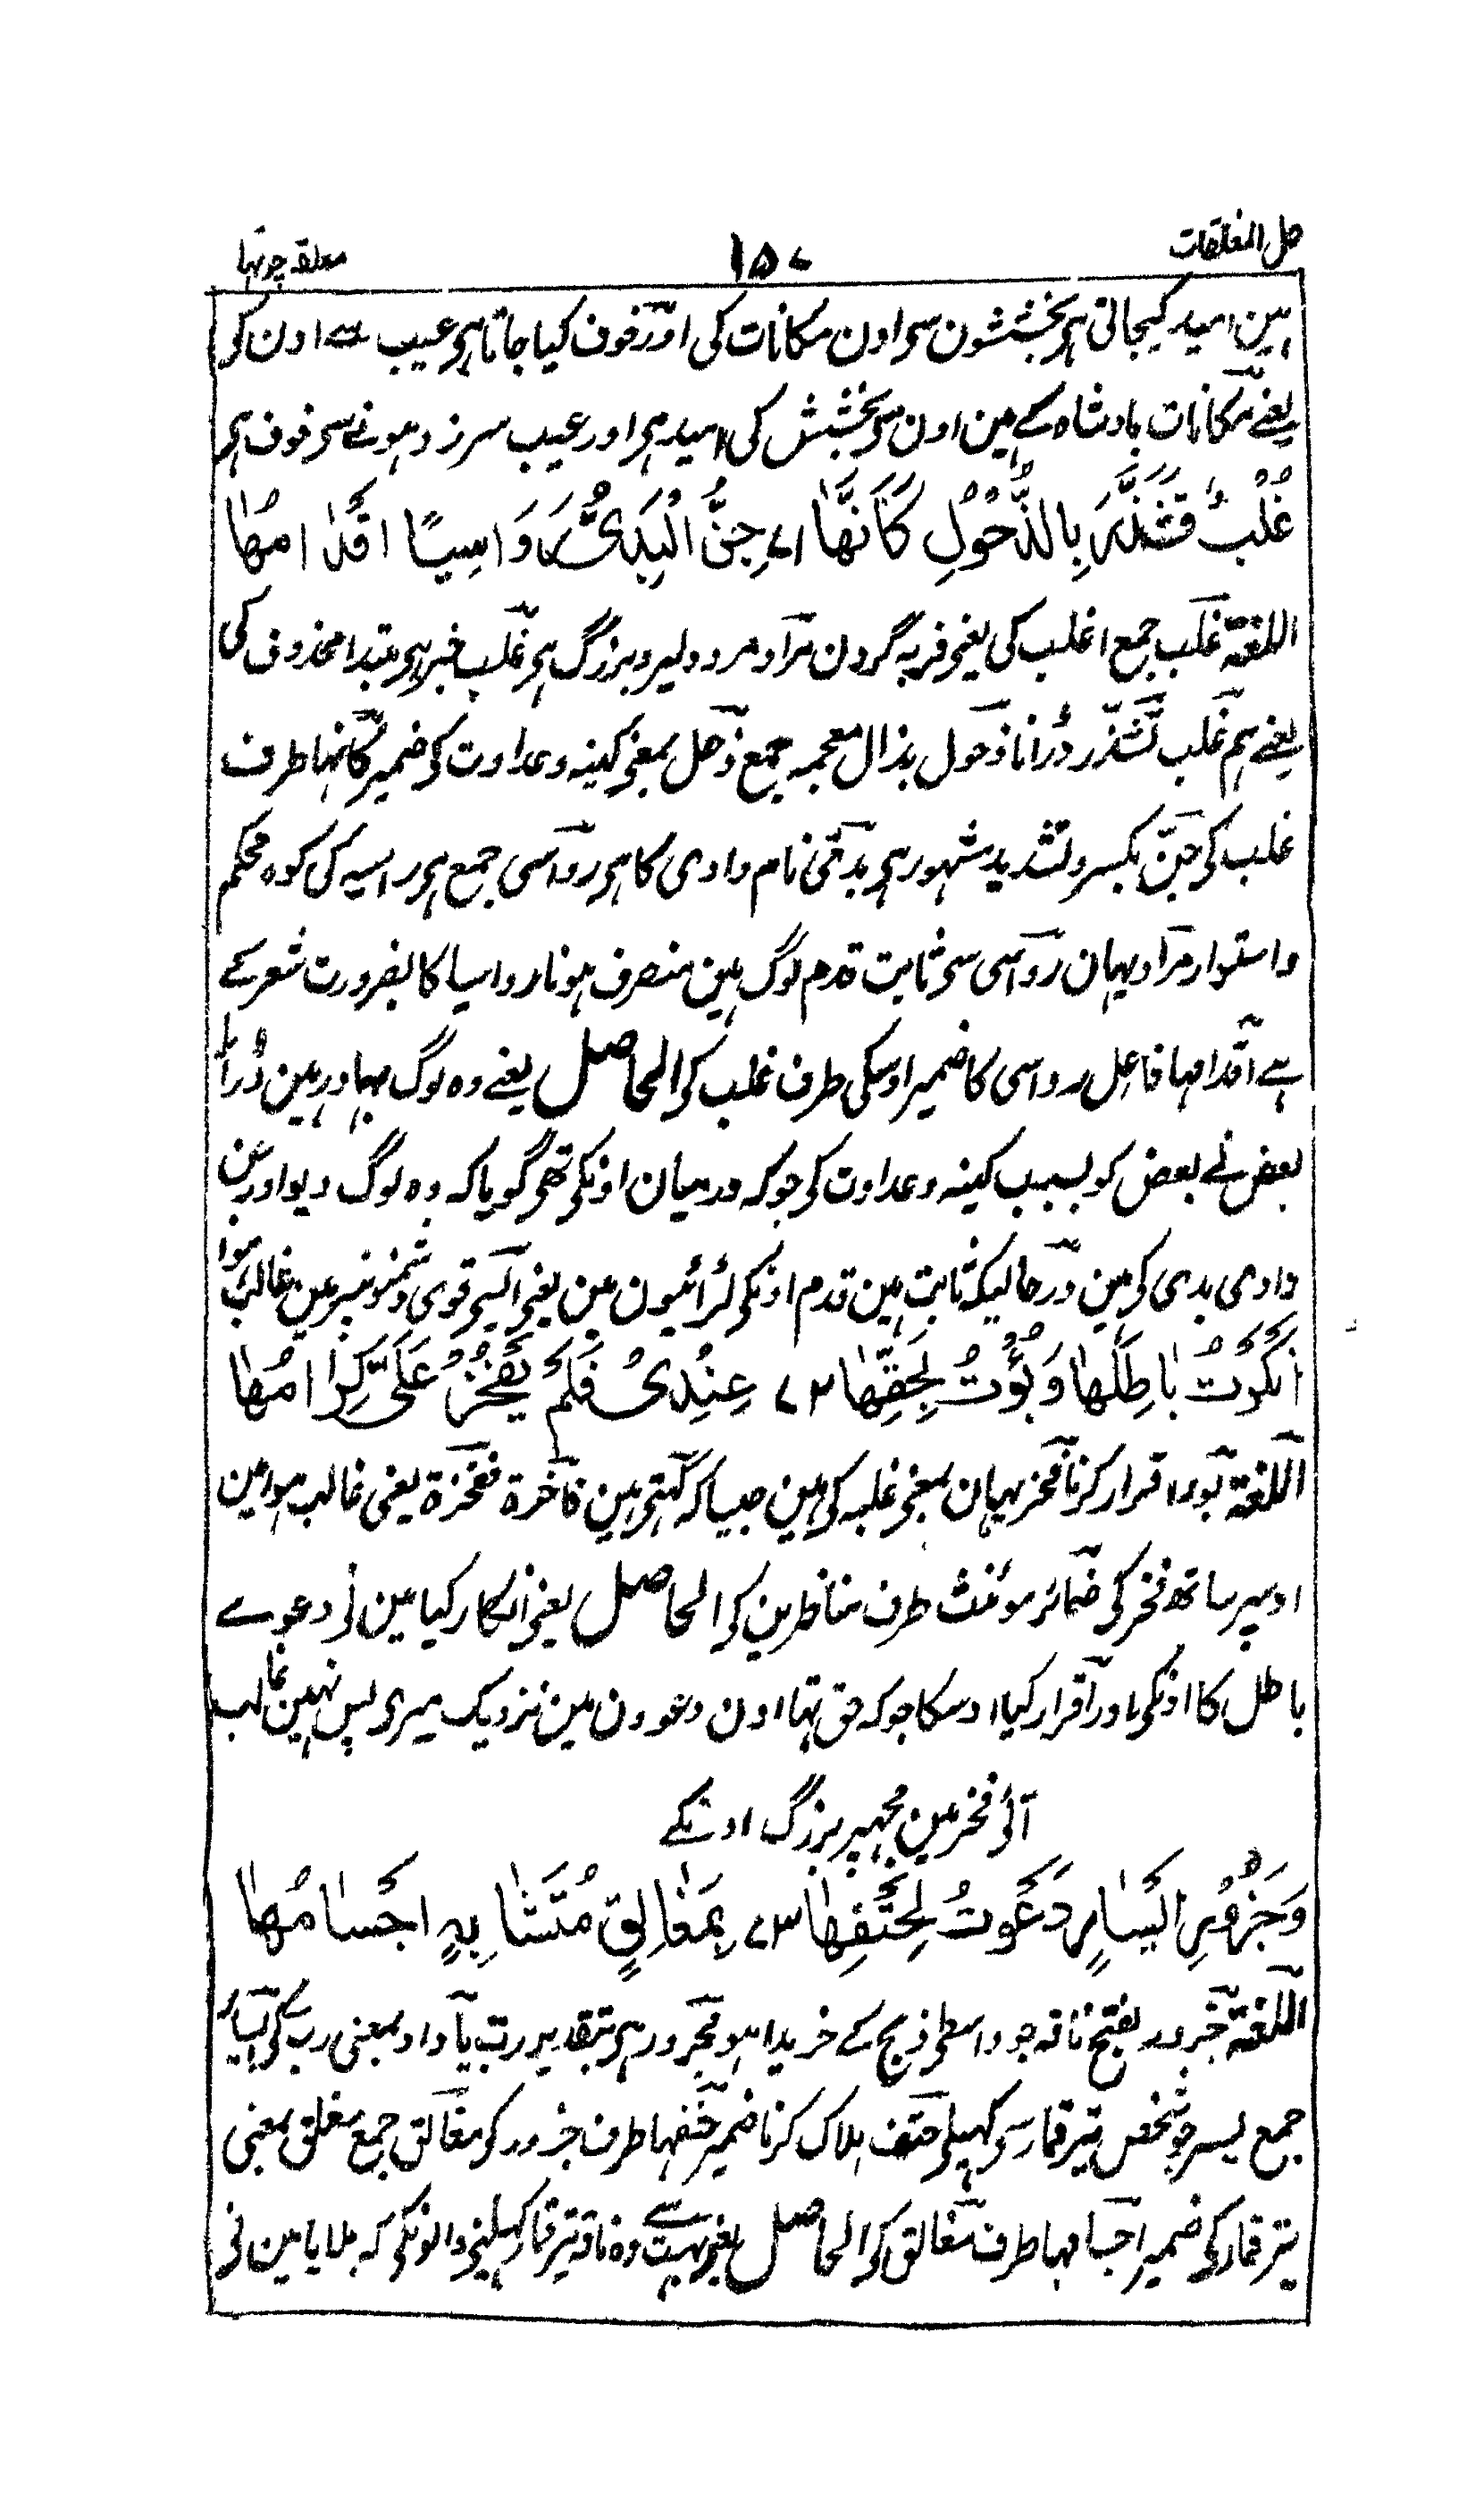 حل المغلقات
۱۵۷
معلقہ چوتھا
ہین امید کیجاتی ہی بخششون سی اون مکانات کی اور خوف کیا جاتا ہی عیب سے اون کی
یعنے مکانات بادشاہ کے ہین اون سی بخشش کی امید ہی اور عیب سرزد ہونے سی خوف ہی
غُلْبٌ تَشَذَّرَ بِالذُّحُوْلِ كَاَنَّهَا ۷۱ جِنُّ الْبَدِیِّ رَوَاسِیًا اَقْدَامُهَا
اللغۃ غلب جمع اغلب کی یعنی فربہ گردن مراد مرد دلیر و بزرگ ہی غلب خبر ہی مبتدا محذوف کی
یعنے ہم غلب تشذر ڈرانا ذحول بذال معجمہ جمع ذحل بمعنی کینہ و عداوت کی ضمیر کانہا طرف
غلب کی جن بکسر و تشدید مشہور ہی بدی نام وادی کا ہی رواسی جمع ہی راسیہ کی کوہ محکم
و استوار مراد یہان رواسی سی ثابت قدم لوگ ہین منصرف ہونا رواسیا کا بضرورت شعر کے
ہے اقدامہا فاعل رواسی کا ضمیر اوسکی طرف غلب کی الحاصل یعنے وہ لوگ بہادر ہین ڈرایا
بعض نے بعض کو بسبب کینہ و عداوت کی جو کہ درمیان اونکی تھی گویا کہ وہ لوگ دیو اور جن
وادی بدی کی ہین درحالیکہ ثابت ہین قدم اونکی لڑائیون مین یعنی ایسی قوی دشمنونپر مین غالب ہوا
اَنْكَرْتُ بَاطِلَهَا وَبُؤْتُ بِحَقِّهَا ۷۲ عِنْدِیْ فَلَمْ يَفْخَرْ عَلَیَّ كِرَامُهَا
اللغۃ بوء اقرار کرنا فخر یہان بمعنی غلبہ کی ہین جیسا کہ کہتی ہین فاخرۃ ففخرۃ یعنی غالب ہوا مین
اوسپر ساتھ فخر کی ضمائر مونث طرف مناظرین کی الحاصل یعنی انکار کیا مین نی دعوے
باطل کا اونکی اور اقرار کیا اوسکا جو کہ حق تہا اون دعوون مین نزدیک میری پس نہین غالب
آئی فخر مین مجہپر بزرگ اونکے
وَجَزُوْرِ اَيْسَارٍ دَعَوْتُ لِحَتْفِهَا ۷۳ بِمَغَالِقٍ مُتَشَابِهٍ اَجْسَامُهَا
اللغۃ جزور بفتح ناقہ جو واسطی ذبح کے خریدا ہو مجرور ہی بتقدیر رب یا واو بمعنی رب کی ایسار
جمع یسر جو شخص تیر قمار سی کہیلی حتف ہلاک کرنا ضمیر حتفہا طرف جزور کی مغالق جمع مغلق بمعنی
تیر قمار کی ضمیر اجسامہا طرف مغالق کی الحاصل یعنی بہت سے وہ ناقہ تیر قمار کہیلنی والونکی کہ بلایا مین نی